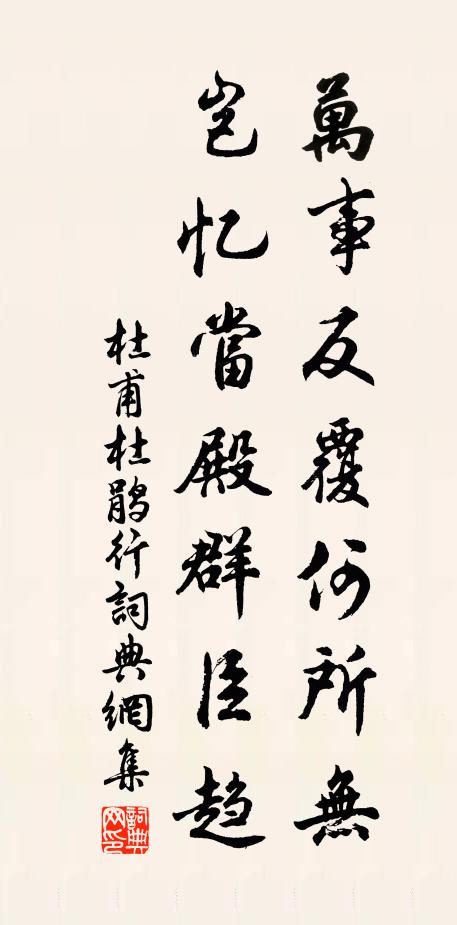 萬事反覆何所無
岂忆當殿群臣趋
杜甫杜鹃行詞典網集
詞典网印